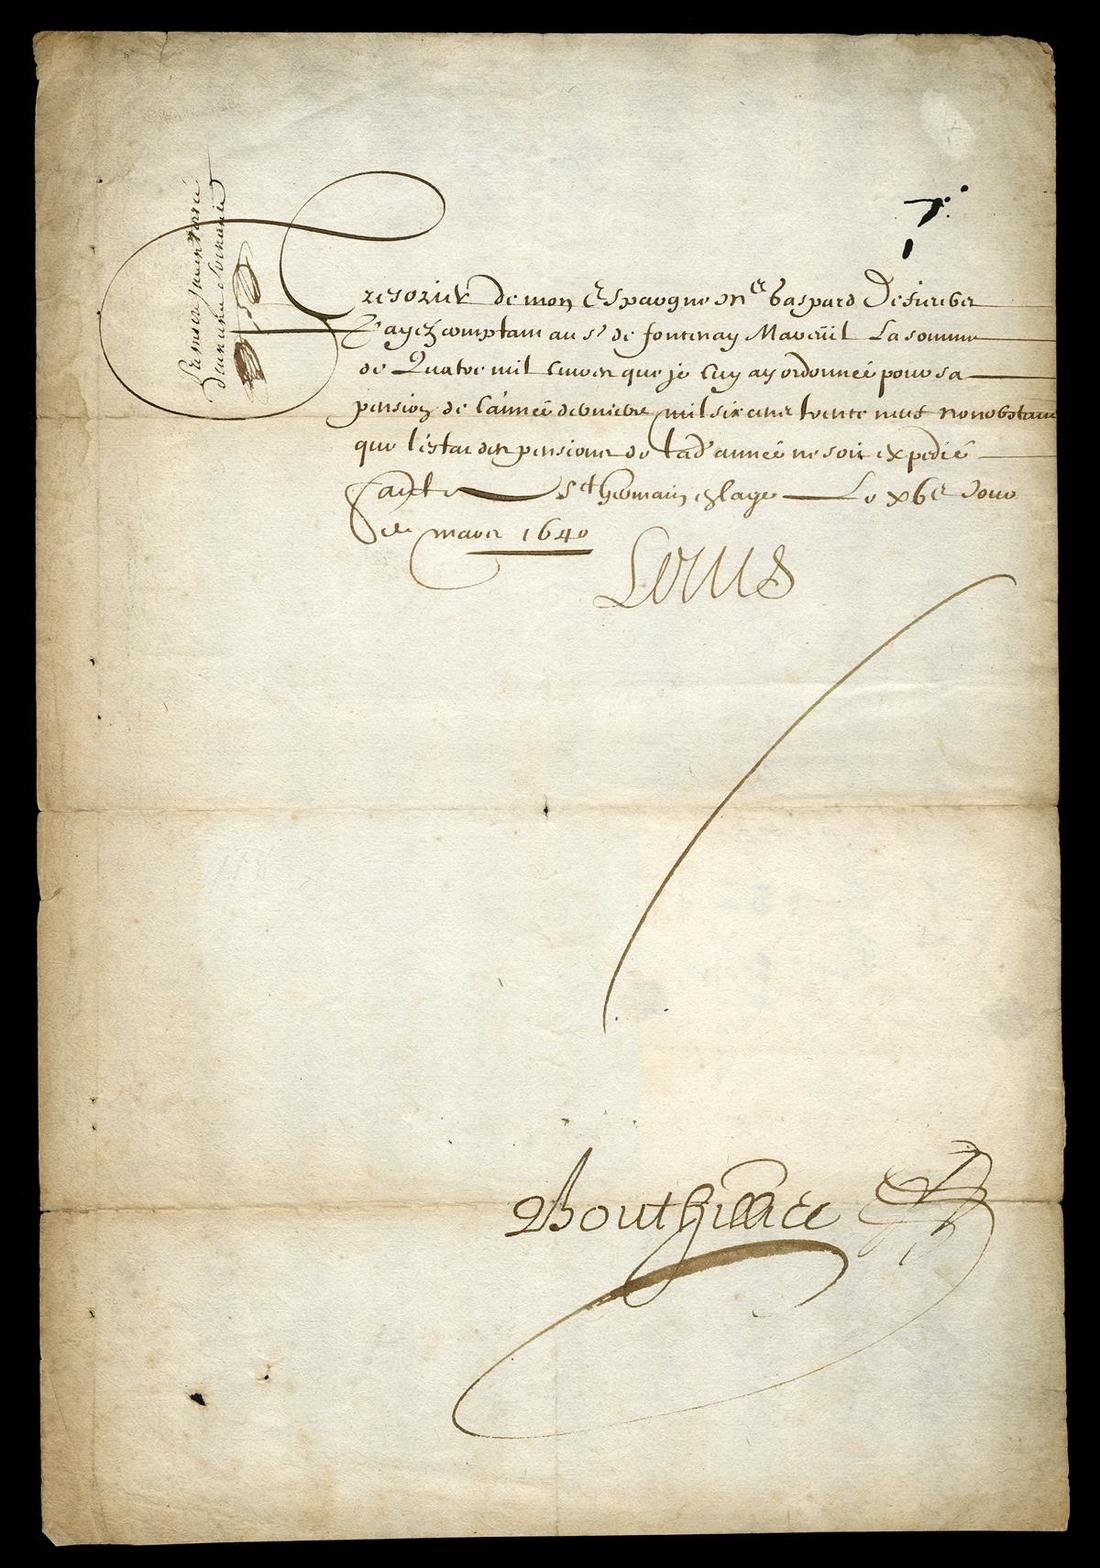 Tresorier de mon Espargne Mr Gaspard de fieubet
Payez comptant au Sr de fontenay Mareüil La somme
de Quatre mil livres que je luy ay ordonnée pour sa
pension de l'année derniere mil six cens trente neuf nonobstant
que l'estat des pensions de lad' année ne soit expedié
faict a St Germain en laye Le xbe Jour
de mars 1640
Louis
Bouthillier